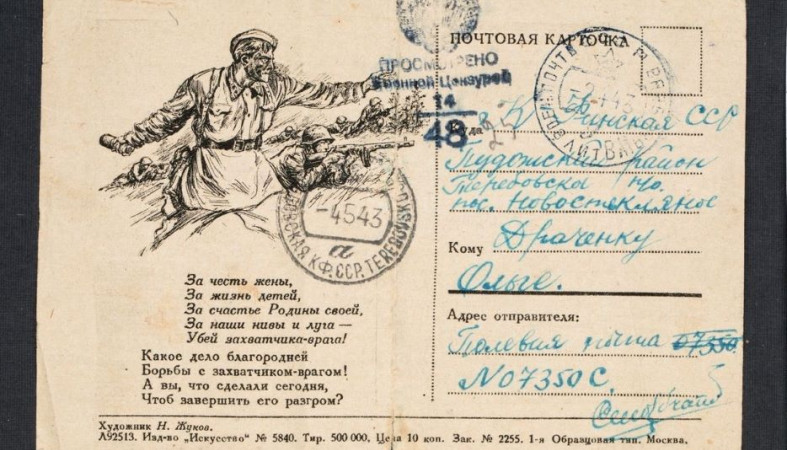 ПОЧТОВАЯ КАРТОЧКА
ПРОСМОТРЕНО
Военной Цензурой
14
48
Куда
Финская ССР
Пудожский район
Теребовское п/о.
пос. Новостекляное
Кому Драченку
Ольге.
Адрес отправителя:
Полевия почта 07350
N 07350 С.
-4.5.43
а
К.Ф.ССР. TEREBOVSK
4.43
За честь жены,
За жизнь детей,
За счастье Родины своей,
За наши нивы и луга —
Убей захватчика-врага!
Какое дело благородней
Борьбы с захватчиком-врагом!
А вы, что сделали сегодня,
Чтоб завершить его разгром?
Художник Н. Жуков.
Л92513. Изд-во „Искусство" № 5840. Тир. 500 000, Цена 10 коп. Зак. № 2255. 1-я Образцовая тип. Москва.